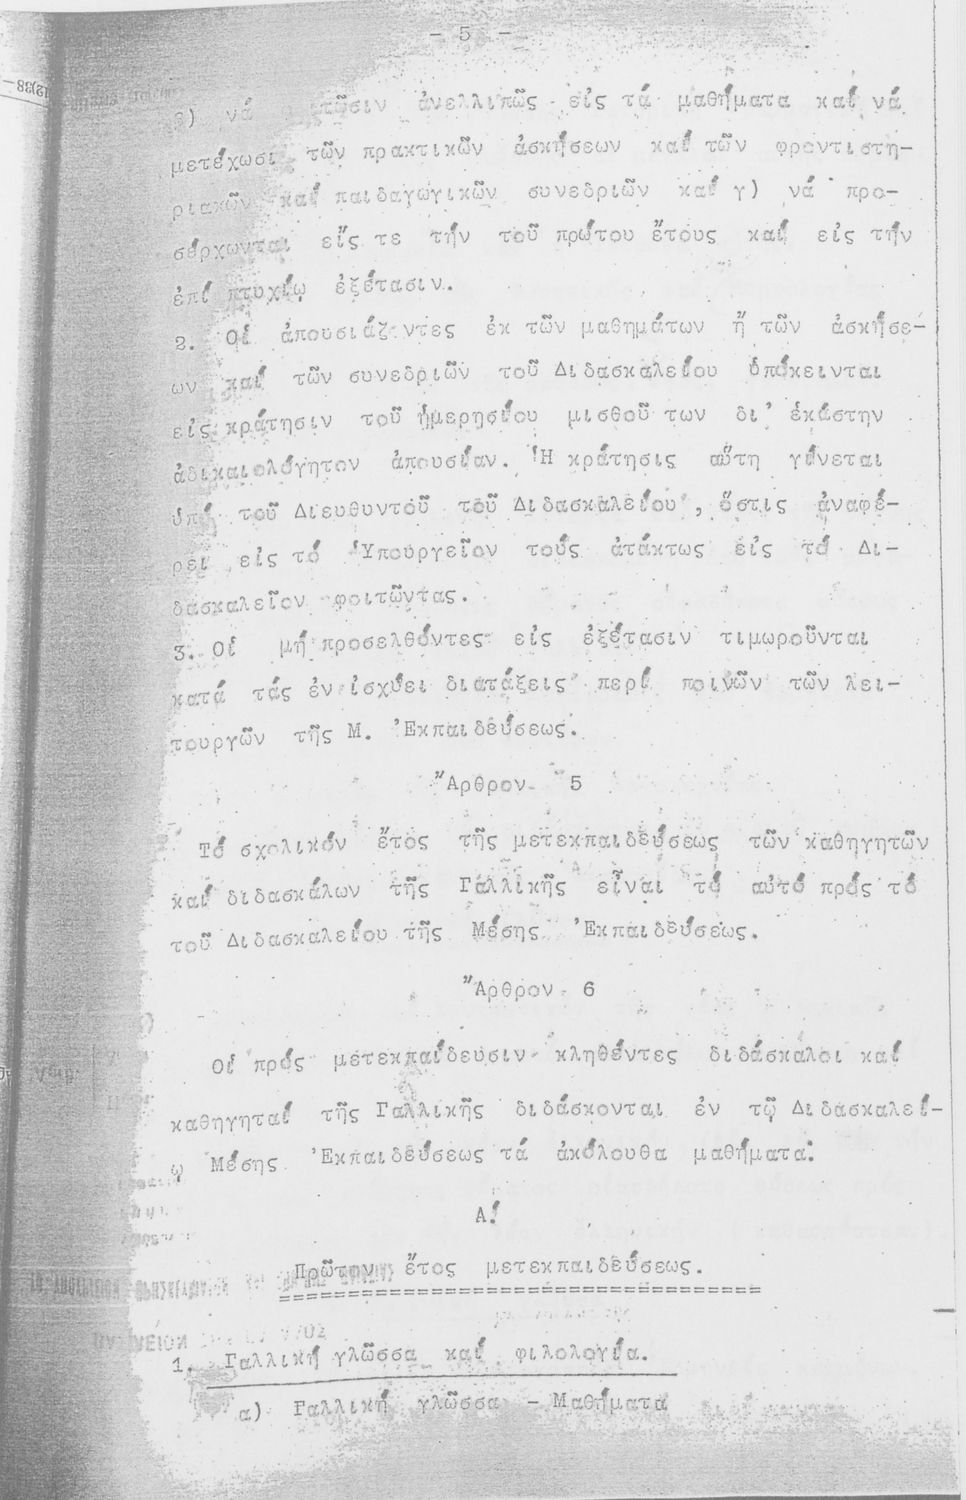 - 5 -
β) νά φοιτῶσιν ἀνελλιπῶς εἰς τά μαθήματα καί νά
μετέχωσι τῶν πρακτικῶν ἀσκήσεων καί τῶν φροντιστη-
ριακῶν καί παιδαγωγικῶν συνεδριῶν καί γ) νά προ-
σέρχωνται εἴς τε τήν τοῦ πρώτου ἔτους καί εἰς τήν
ἐπί πτυχίῳ ἐξέτασιν.
2. Οἱ ἀπουσιάζοντες ἐκ τῶν μαθημάτων ἤ τῶν ἀσκήσε-
ων καί τῶν συνεδριῶν τοῦ Διδασκαλείου ὑπόκεινται
εἰς κράτησιν τοῦ ἡμερησίου μισθοῦ των δι' ἑκάστην
ἀδικαιολόγητον ἀπουσίαν. Ἡ κράτησις αὕτη γίνεται
ὑπό τοῦ Διευθυντοῦ τοῦ Διδασκαλείου, ὅστις ἀναφέ-
ρει εἰς τό Ὑπουργεῖον τούς ἀτάκτως εἰς τό Δι-
δασκαλεῖον φοιτῶντας.
3. Οἱ μή προσελθόντες εἰς ἐξέτασιν τιμωροῦνται
κατά τάς ἐν ἰσχύει διατάξεις περί ποινῶν τῶν λει-
τουργῶν τῆς Μ. Ἐκπαιδεύσεως.
Ἄρθρον 5
Τό σχολικόν ἔτος τῆς μετεκπαιδεύσεως τῶν καθηγητῶν
καί διδασκάλων τῆς Γαλλικῆς εἶναι τό αὐτό πρός τό
τοῦ Διδασκαλείου τῆς Μέσης Ἐκπαιδεύσεως.
Ἄρθρον 6
Οἱ πρός μετεκπαίδευσιν κληθέντες διδάσκαλοι καί
καθηγηταί τῆς Γαλλικῆς διδάσκονται ἐν τῷ Διδασκαλεί-
ῳ Μέσης Ἐκπαιδεύσεως τά ἀκόλουθα μαθήματα:
Α!
Πρῶτον ἔτος μετεκπαιδεύσεως.
1. Γαλλική γλῶσσα καί φιλολογία.
α) Γαλλική γλῶσσα - Μαθήματα